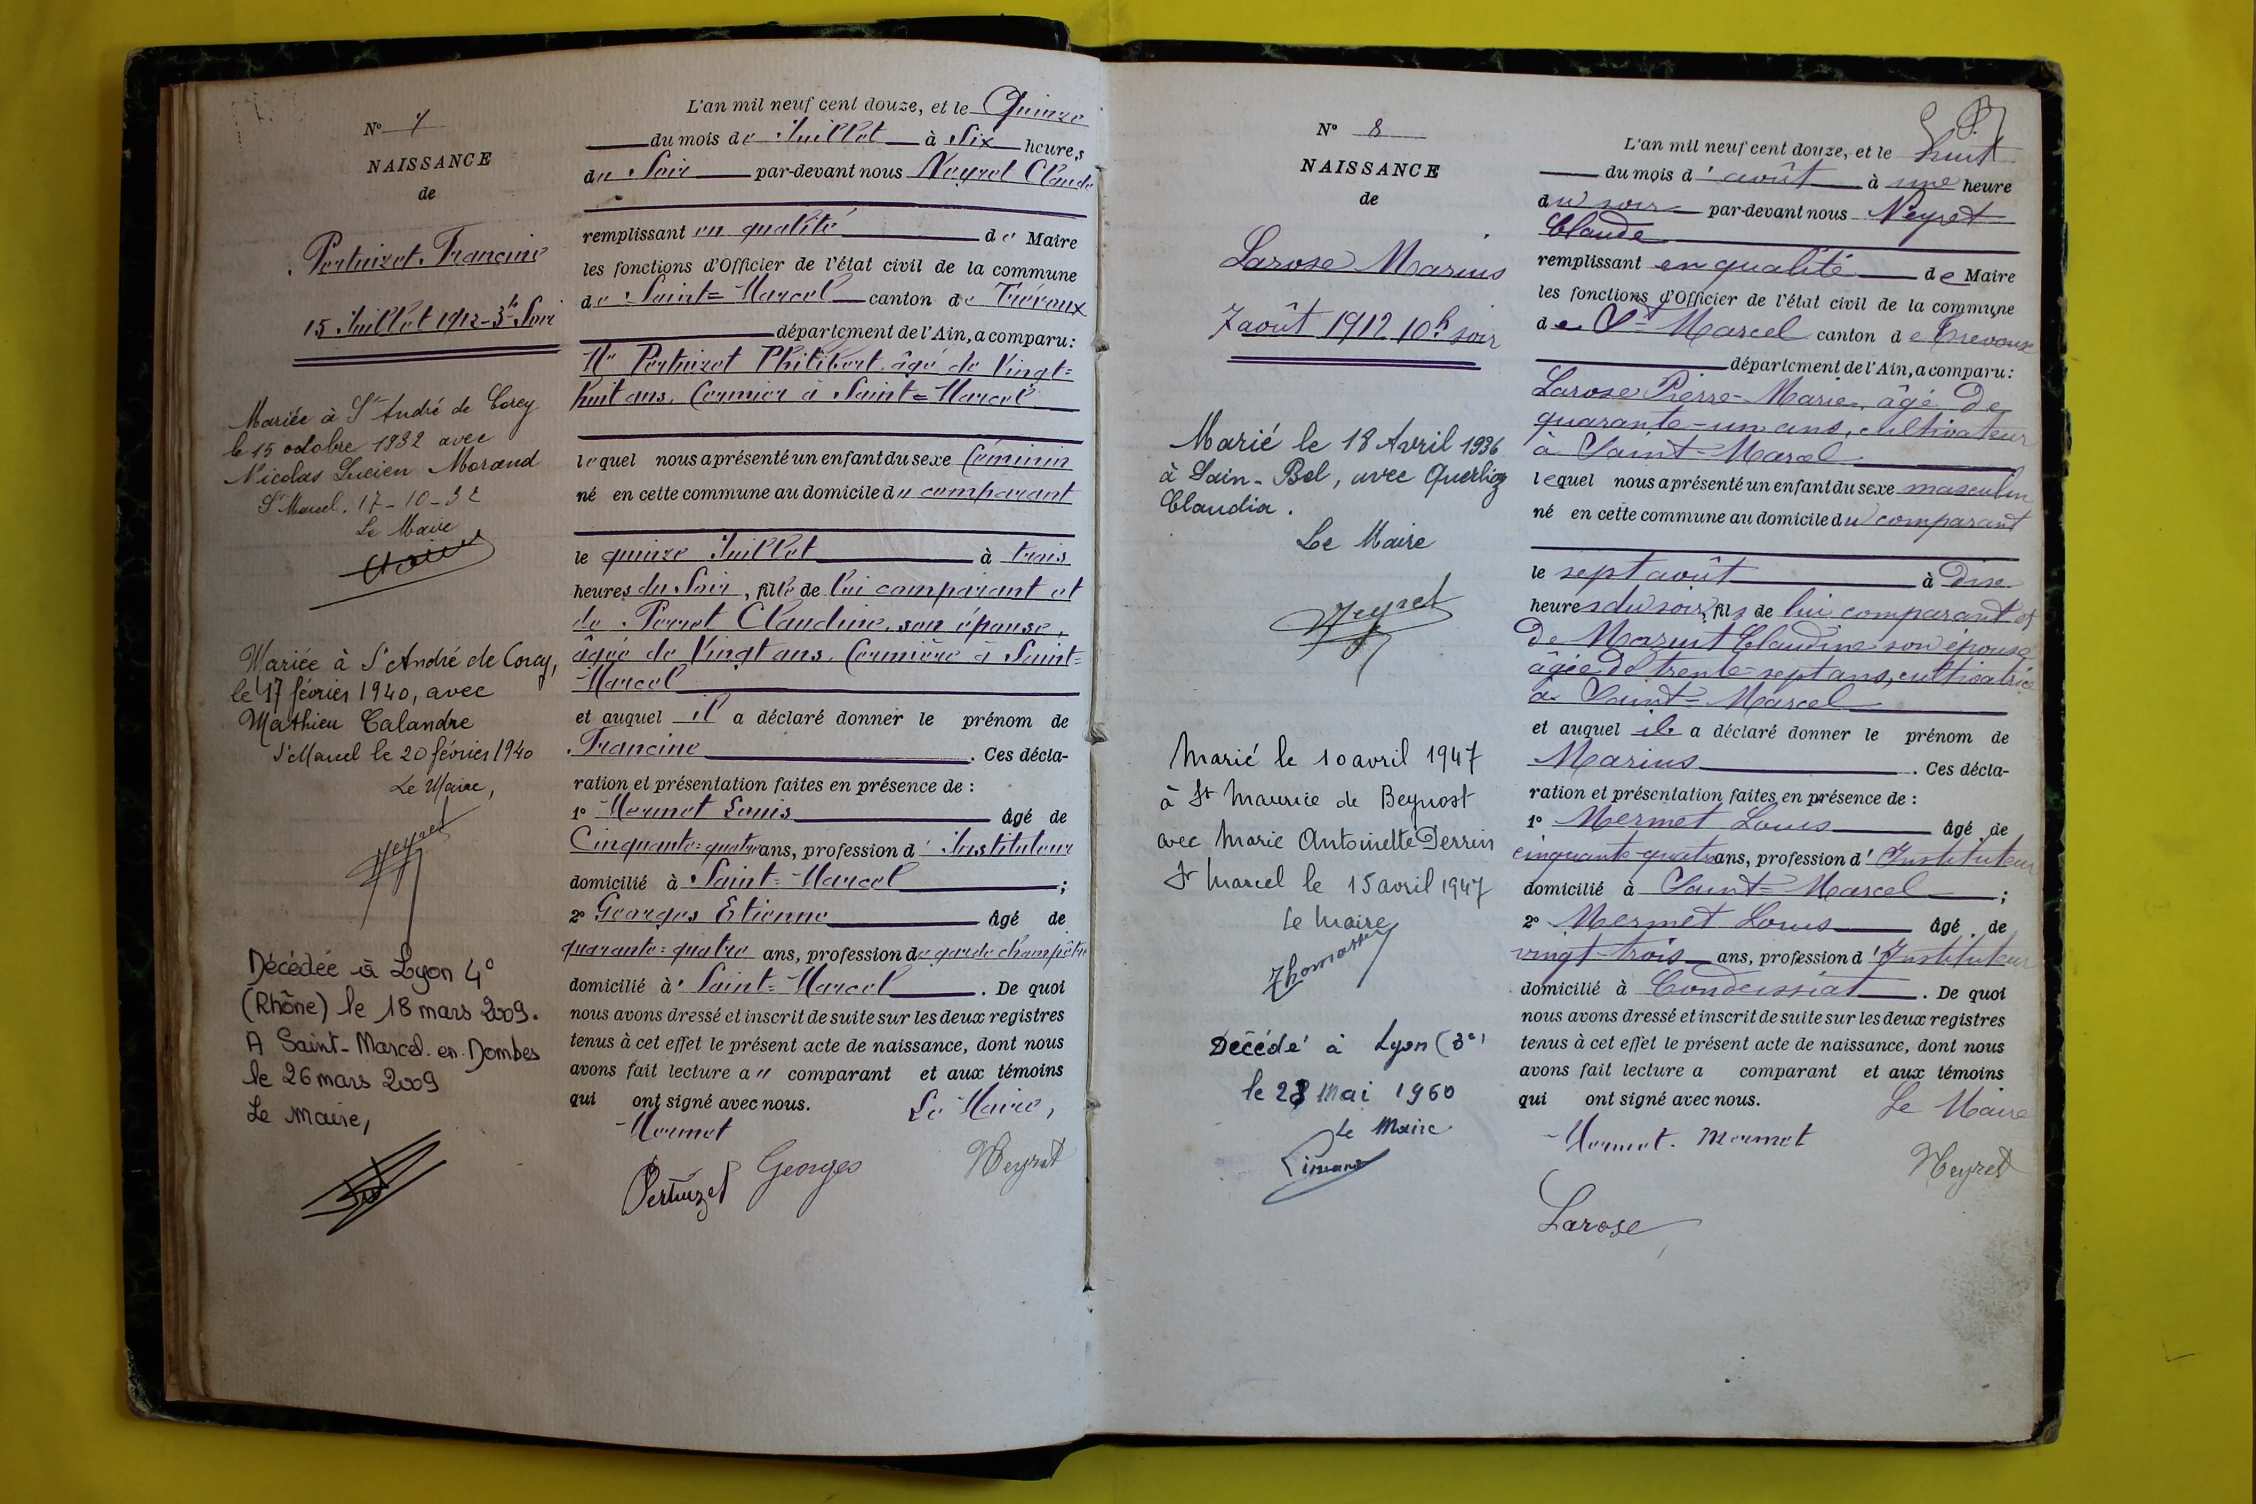 N° 7
NAISSANCE
de
Pertuizet Francine
15 Juillet 1912 - 3h Soir
Mariée à St André de Corcy
le 15 octobre 1932 avec
Nicolas Lucien Morand
St Marcel. 17-10-32
Le Maire
Mariée à St André de Corcy,
le 17 février 1940, avec
Mathieu Calandre
St Marcel le 20 février 1940
Le Maire,
Neyret
Décédée à Lyon 4°
(Rhône) le 18 mars 2009.
A Saint-Marcel-en-Dombes
le 26 mars 2009
Le Maire,
L'an mil neuf cent douze, et le Quinze
du mois de Juillet à Six heures
du Soir par-devant nous Neyret Claude
remplissant en qualité de Maire
les fonctions d'Officier de l'état civil de la commune
de Saint=Marcel canton de Trévoux
département de l'Ain, a comparu:
Mr Pertuizet Philibert, âgé de Vingt=
huit ans, Fermier à Saint=Marcel
lequel nous a présenté un enfant du sexe féminin
né en cette commune au domicile du comparant
le quinze Juillet à trois
heures du Soir, fille de lui comparant et
de Perret Claudine, son épouse,
âgée de Vingt ans, Fermière à Saint=
Marcel
et auquel il a déclaré donner le prénom de
Francine. Ces décla-
ration et présentation faites en présence de :
1° Mermet Louis Âgé de
Cinquante=quatre ans, profession d'Instituteur
domicilié à Saint=Marcel ;
2° Georges Etienne Âgé de
quarante=quatre ans, profession de garde champêtre
domicilié à Saint=Marcel. De quoi
nous avons dressé et inscrit de suite sur les deux registres
tenus à cet effet le présent acte de naissance, dont nous
avons fait lecture au comparant et aux témoins
qui ont signé avec nous. Le Maire,
Mermet
Pertuizet Georges Neyret
N° 8
NAISSANCE
de
Larose Marius
7 août 1912 10h soir
Marié le 18 Avril 1936
à Sain-Bel, avec Querlioz
Claudia.
Le Maire
Neyret
Marié le 10 avril 1947
à St Maurice de Beynost
avec Marie Antoinette Perrin
St Marcel le 15 avril 1947
Le Maire
Thomasset
Décédé à Lyon (3e)
le 28 Mai 1960
Le Maire
L'an mil neuf cent douze, et le huit
du mois d'août à une heure
du soir par-devant nous Neyret
Claude
remplissant en qualité de Maire
les fonctions d'Officier de l'état civil de la commune
de St Marcel canton de Trevoux
département de l'Ain, a comparu:
Larose Pierre-Marie, âgé de
quarante-un ans, cultivateur
à Saint-Marcel
lequel nous a présenté un enfant du sexe masculin
né en cette commune au domicile du comparant
le sept août à dix
heures du soir, fils de lui comparant et
de Mazuit Claudine son épouse
âgée de trente-sept ans, cultivatrice
à Saint-Marcel
et auquel il a déclaré donner le prénom de
Marius. Ces décla-
ration et présentation faites en présence de :
1° Mermet Louis âgé de
cinquante quatre ans, profession d'Instituteur
domicilié à Saint=Marcel ;
2° Mermet Louis Âgé de
vingt-trois ans, profession d'Instituteur
domicilié à Condeissiat. De quoi
nous avons dressé et inscrit de suite sur les deux registres
tenus à cet effet le présent acte de naissance, dont nous
avons fait lecture a comparant et aux témoins
qui ont signé avec nous. Le Maire
Mermet. Mermet
Neyret
Larose